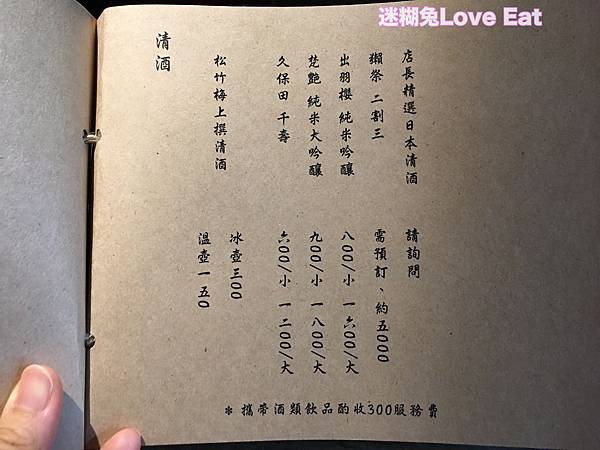 迷糊兔Love Eat
清酒
店長精選日本清酒 請詢問
獺祭 二割三 需預訂、約五000
出羽櫻 純米吟釀 八00/小 一六00/大
梵艷 純米大吟釀 九00/小 一八00/大
久保田 千壽 六00/小 一二00/大
松竹梅上撰清酒 冰壺三00
溫壺一五0
*攜帶酒類飲品酌收300服務費